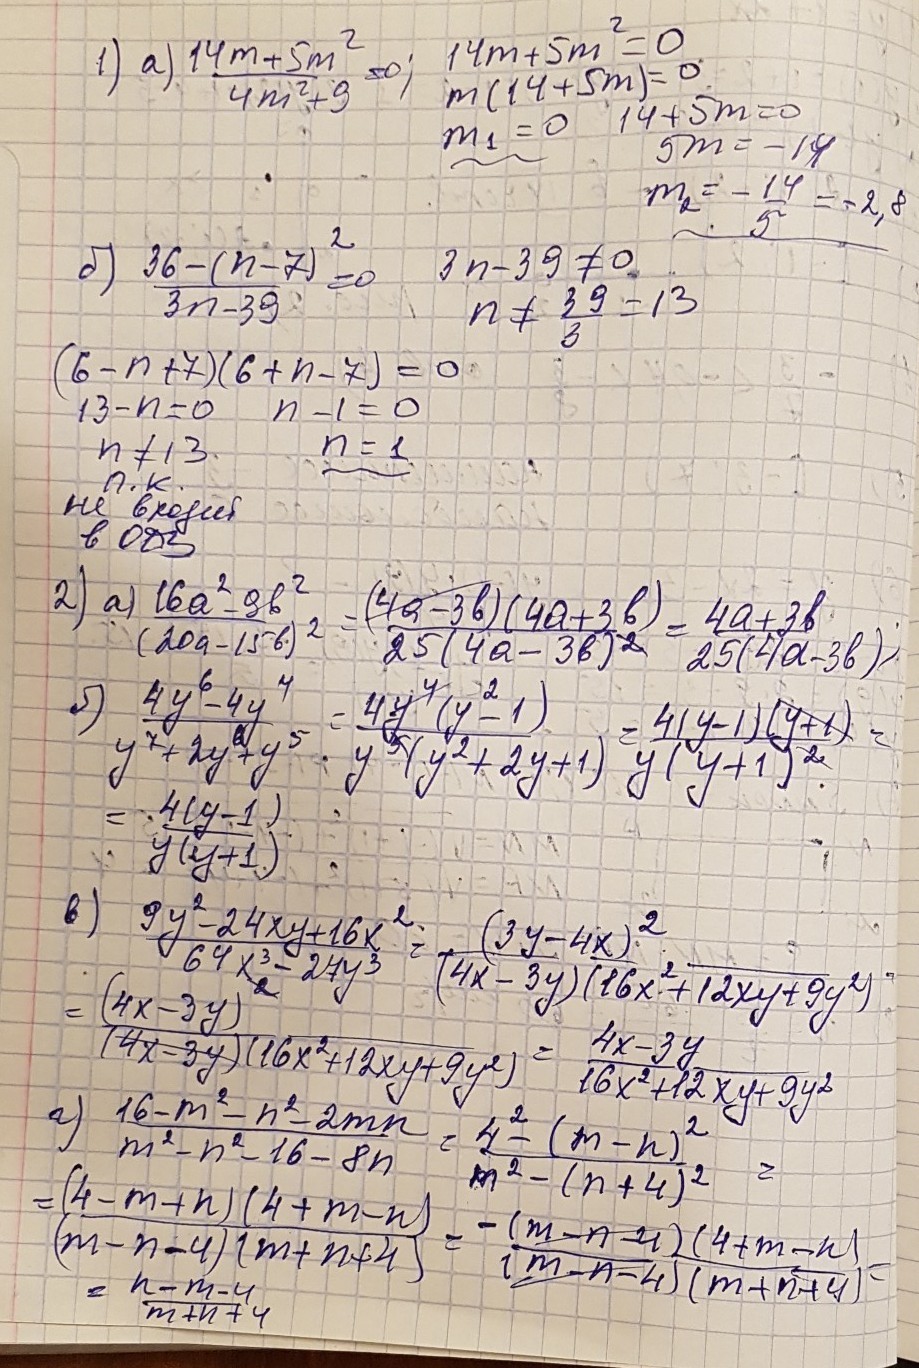 1) а) (14m+5m²)/(4m²+9) =0; 14m+5m²=0
m(14+5m)=0
m₁=0 14+5m=0
5m=-14
m₂=-14/5=-2,8
б) (36-(n-7)²)/(3n-39)=0 3n-39≠0
n≠39/3=13
(6-n+7)(6+n-7)=0
13-n=0 n-1=0
n≠13 n=1
т.к.
не входит
в ОДЗ
2) а) (16a²-9b²)/(20a-15b)² = (4a-3b)(4a+3b)/25(4a-3b)² = (4a+3b)/25(4a-3b);
б) (4y⁶-4y⁴)/(y⁷+2y⁶+y⁵) = 4y⁴(y²-1)/y⁵(y²+2y+1) = 4(y-1)(y+1)/y(y+1)² =
= 4(y-1)/y(y+1)
в) (9y²-24xy+16x²)/(64x³-27y³) = (3y-4x)²/(4x-3y)(16x²+12xy+9y²) =
= (4x-3y)²/(4x-3y)(16x²+12xy+9y²) = (4x-3y)/(16x²+12xy+9y²)
г) (16-m²-n²-2mn)/(m²-n²-16-8n) = (4²-(m-n)²)/(m²-(n+4)²) =
= (4-m+n)(4+m-n)/(m-n-4)(m+n+4) = -(m-n-4)(4+m-n)/(m-n-4)(m+n+4) =
= (n-m-4)/(m+n+4)